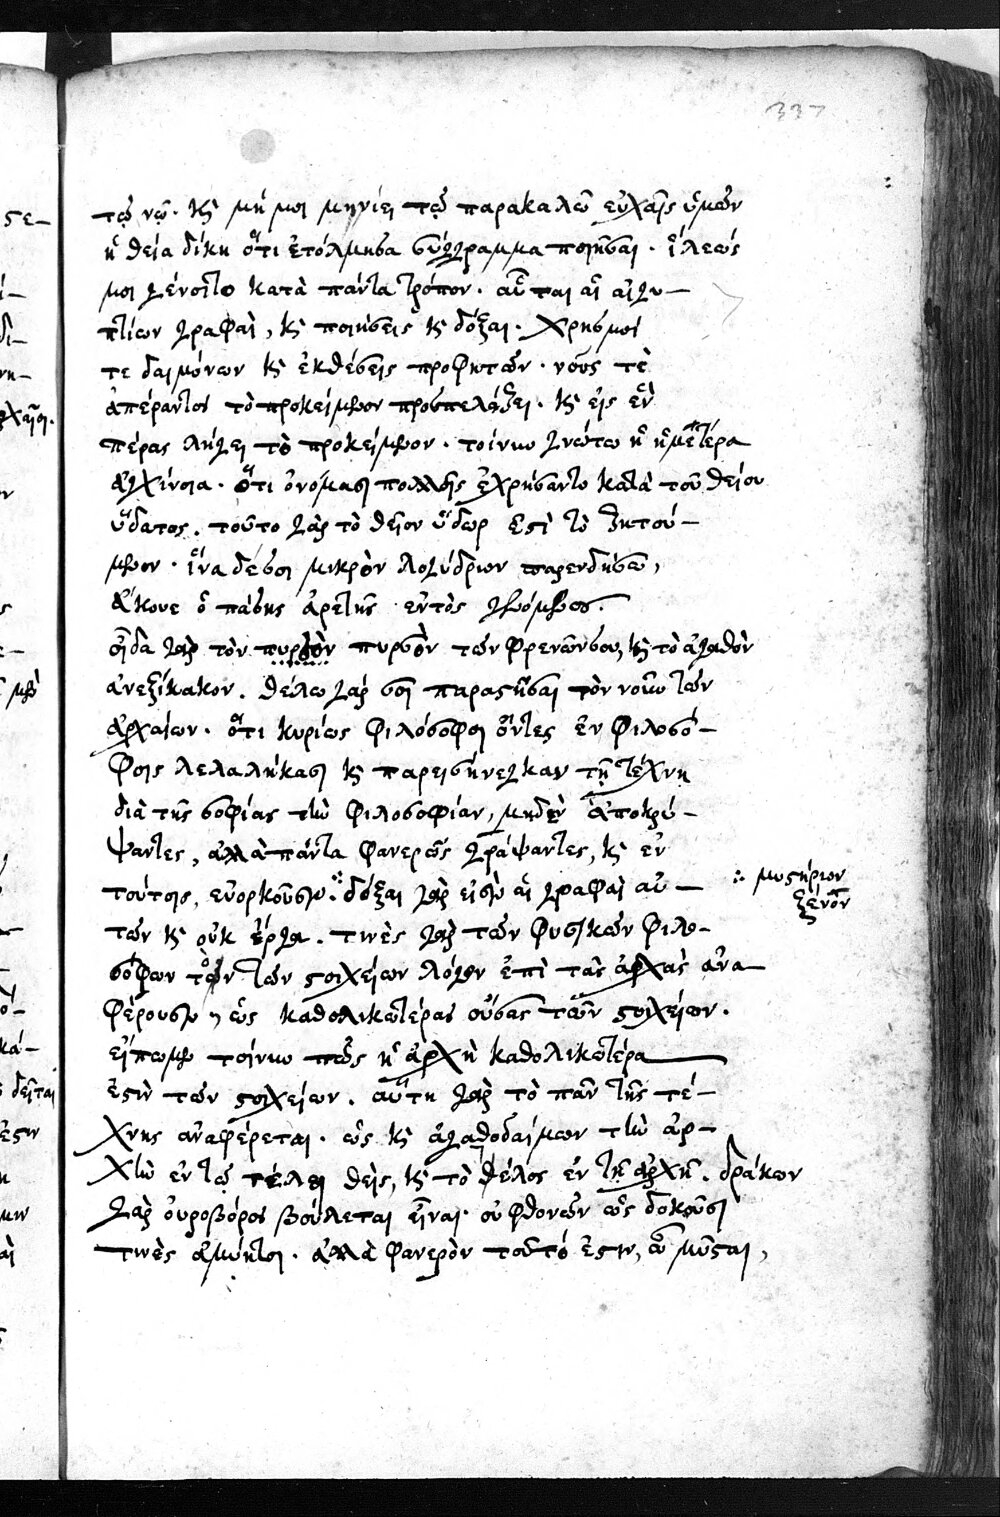 337
τῷ νῷ. καὶ μή μοι μηνίει τῷ παρακαλῶ εὐχαῖς ὑμῶν
ἡ θεία δίκη ὅτι ἐτόλμησα σύγγραμμα ποιῆσαι. ἵλεώς
μοι γένοιτο κατὰ πάντα τρόπον. αὗται αἱ αἰγυ-
πτίων γραφαὶ, καὶ ποιήσεις καὶ δόξαι. χρησμοί
τε δαιμόνων καὶ ἐκθέσεις προφητῶν. νοῦς τὲ
ἀπέραντον τὸ προκείμενον προσπελάζει. καὶ εἰς ἓν
πέρας λήγει τὸ προκείμενον. τοίνυν γνώτω ἡ ἡμετέρα
ἀγχίνοια. ὅτι ὀνόμασι πολλοῖς ἐχρήσαντο κατὰ τοῦ θείου
ὕδατος. τοῦτο γὰρ τὸ θεῖον ὕδωρ ἐστὶ τὸ ζητού-
μενον. ἵνα δέ σοι μικρὸν λογύδριον παρενδήσω,
ἄκουε ὁ πάσης ἀρετῆς ἐντὸς γενόμενος.
οἶδα γὰρ τὸν πυρσὸν τῶν φρενῶν σου, καὶ τὸ ἀγαθὸν
ἀνεξίκακον. θέλω γάρ σοι παραστῆσαι τὸν νοῦν τῶν
ἀρχαίων. ὅτι κυρίως φιλόσοφοι ὄντες ἐν φιλοσό-
φοις λελαλήκασι καὶ παρεισήνεγκαν τῇ τέχνῃ
διὰ τῆς σοφίας τὴν φιλοσοφίαν, μηδὲν ἀποκρύ-
ψαντες, ἀλλὰ πάντα φανερῶς γράψαντες, καὶ ἐν
τούτοις, εὐορκοῦσιν. δόξαι γὰρ εἰσὶν αἱ γραφαὶ αὐ-
των καὶ οὐκ ἔργα. τινὲς γὰρ τῶν φυσικῶν φιλο-
σόφων τὸν τῶν στοιχείων λόγον ἐπὶ τὰς ἀρχὰς ἀνα-
φέρουσιν, ὡς καθολικωτέρας οὔσας τῶν στοιχείων.
εἴπωμεν τοίνυν πῶς ἡ ἀρχὴ καθολικωτέρα
ἐστὶν τῶν στοιχείων. αὕτη γὰρ τὸ πᾶν τῆς τέ-
χνης ἀναφέρεται. ὡς καὶ ἀγαθοδαίμων τὴν ἀρ-
χὴν ἐν τῷ τέλει θεὶς, καὶ τὸ θέλος ἐν τῇ ἀρχῇ. δράκων
γὰρ οὐροβόρος βούλεται εἶναι. οὐ φθονῶν ὡς δοκοῦσι
τινὲς ἀμύητοι. ἀλλὰ φανερὸν τοῦτό ἐστιν, ὦ μῦσται,
μυστήριον
ξένον